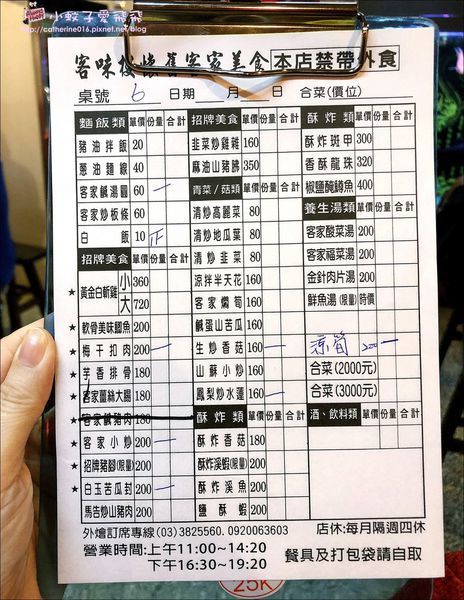 小蚊子愛飛飛
http://catherine016.pixnet.net/blog
客味楼懷舊客家美食 本店禁帶外食
桌號 6 日期 月 日 合菜(價位)
麵飯類 單價 份量 合計
豬油拌飯 20
蔥油麵線 40
客家鹹湯圓 60 一
客家炒板條 60
白飯 10 正
招牌美食 單價 份量 合計
★ 黃金白斬雞 小 360
大 720
★ 軟骨美味鯽魚 200
★ 梅干扣肉 200 一
★ 芋香排骨 180
★ 客家薑絲大腸 180
★ 客家鹹豬肉 180
★ 客家小炒 200 一
★ 招牌豬腳(限量) 200
★ 白玉苦瓜封 200 一
馬告炒山豬肉 200
招牌美食 單價 份量 合計
韭菜炒雞雜 160
麻油山豬肺 350
青菜/菇類 單價 份量 合計
清炒高麗菜 80
清炒地瓜葉 80
清炒韭菜 80
涼拌半天花 160
客家燜筍 160
鹹蛋山苦瓜 160
生炒香菇 160 一
山蘇小炒 160
鳳梨炒水蓮 160 一
酥炸類 單價 份量 合計
酥炸香菇 180
酥炸溪蝦(限量) 200
酥炸溪魚 200
鹽酥蝦 200
酥炸類 單價 份量 合計
酥炸斑甲 300
香酥龍珠 320
椒鹽醃鱘魚 400
養生湯類 單價 份量 合計
客家酸菜湯 200
客家福菜湯 200
金針肉片湯 200
鮮魚湯(限量) 時價
涼筍 200 一
合菜(2000元)
合菜(3000元)
酒、飲料類 單價 份量 合計
外燴訂席專線(03)3825560. 0920063603 店休:每月隔週四休
營業時間:上午11:00~14:20
下午16:30~19:20 餐具及打包袋請自取
25K